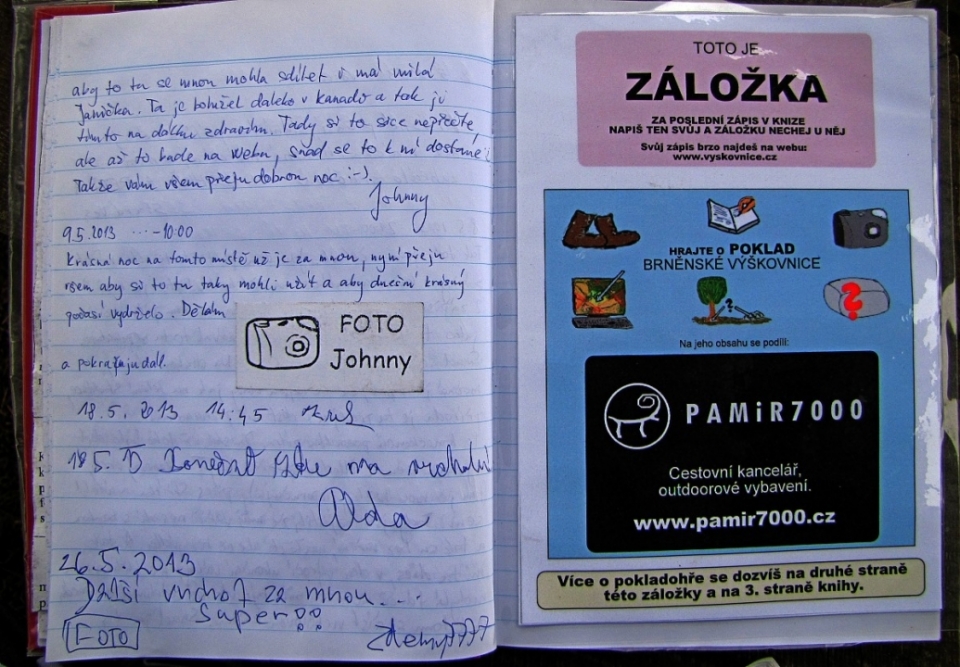 aby to tu se mnou mohla sdílet i má milá
Janička. Ta je bohužel daleko v Kanadě a tak ji
tímto na dálku zdravím. Tady si to sice nepřečte,
ale až to bude na webu, snad se to k ní dostane :
Takže vám všem přeju dobrou noc :-).
Johnny
9.5.2013 ... - 10:00
Krásná noc na tomto místě už je za mnou, nyní přeju
všem aby si to tu taky mohli užít a aby dnešní krásný
počasí vydrželo. Dělám
FOTO
Johnny
a pokračuju dál.
18.5. 2013 14:45
18.5. na vrcholu
Alda
26.5.2013
Další vrchol za mnou...
Super!!
FOTO
Zdeny777
TOTO JE
ZÁLOŽKA
ZA POSLEDNÍ ZÁPIS V KNIZE
NAPIŠ TEN SVŮJ A ZÁLOŽKU NECHEJ U NĚJ
Svůj zápis brzo najdeš na webu:
www.vyskovnice.cz
HRAJTE O POKLAD
BRNĚNSKÉ VÝŠKOVNICE
?
?
Na jeho obsahu se podílí:
PAMiR7000
Cestovní kancelář,
outdoorové vybavení.
www.pamir7000.cz
Více o pokladohře se dozvíš na druhé straně
této záložky a na 3. straně knihy.